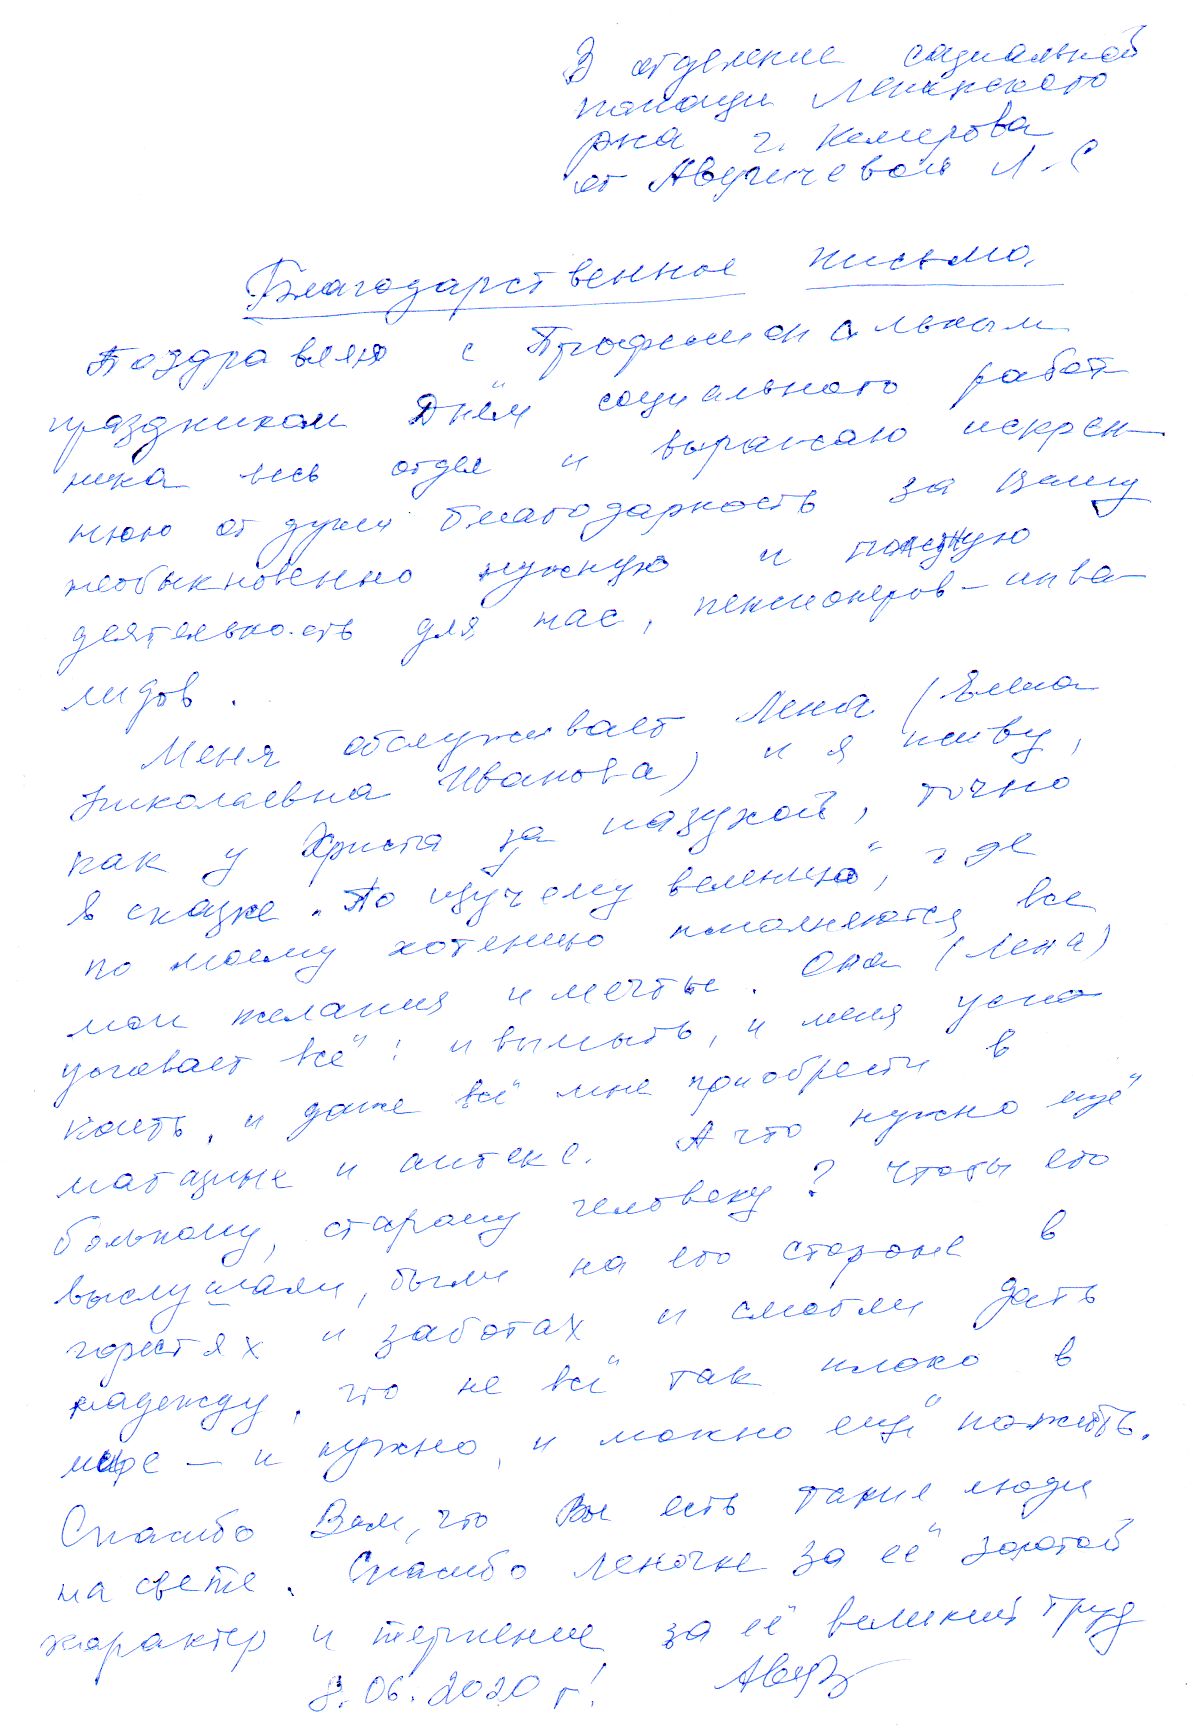 В отделение социальной
помощи Ленинского
р-на г. Кемерова
от Авдеичевой Л. С
Благодарственное письмо.
Поздравляю с Профессиональным
праздником Днём социального работ
ника весь отдел и выражаю искрен-
нюю от души благодарность за Вашу
необыкновенно нужную и
деятельность для нас, пенсионеров-инва-
лидов.
Меня обслуживает Лена (Елена
Николаевна Иванова) и я живу,
как у Христа за пазухой, точно
в сказке „По щучьему велению", где
по моему хотению исполняются все
мои желания и мечты. Она (Лена)
успевает всё: и вымыть, и меня успо
коить, и даже всё мне приобрести в
магазине и аптеке. А что нужно ещё
больному, старому человеку? Чтобы его
выслушали, были на его стороне в
горестях и заботах и смогли дать
надежду, что не всё так плохо в
мире — и нужно, и можно ещё пожить.
Спасибо Вам, что Вы есть такие люди
на свете. Спасибо Леночке за её золотой
характер и терпение, за её великий труд
8.06.2020 г!